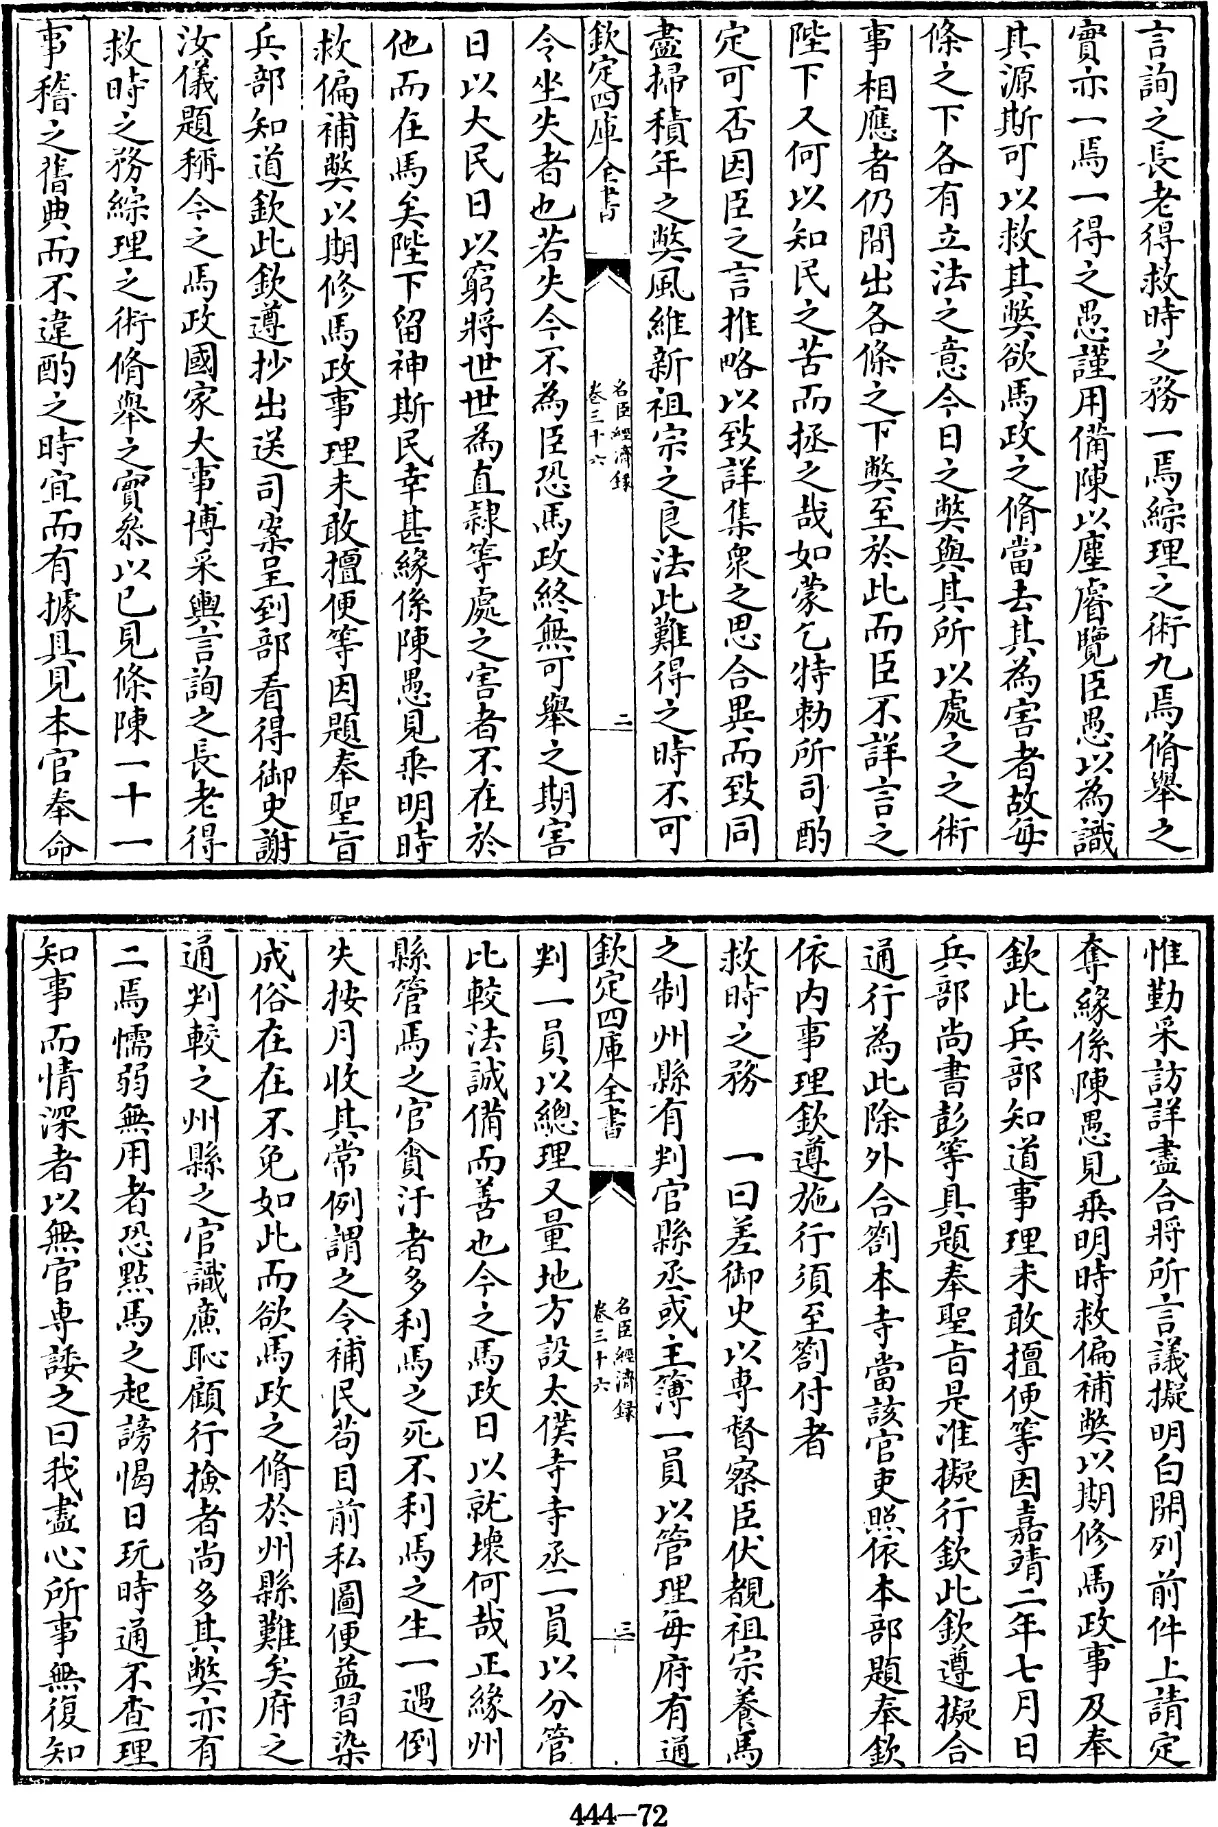 言詢之長老得救時之務一焉綜理之術九焉脩舉之
實亦一焉一得之愚謹用備陳以塵睿覽臣愚以為識
其源斯可以救其弊欲馬政之脩當去其為害者故每
條之下各有立法之意今日之弊與其所以處之之術
事相應者仍間出各條之下弊至於此而臣不詳言之
陛下又何以知民之苦而拯之哉如蒙乞特勅所司酌
定可否因臣之言推略以致詳集衆之思合異而致同
盡掃積年之弊風維新祖宗之良法此難得之時不可
欽定四庫全書
名臣經濟録
卷三十六
二
令坐失者也若失今不為臣恐馬政終無可舉之期害
日以大民日以窮將世世為直隷等處之害者不在於
他而在馬矣陛下留神斯民幸甚緣係陳愚見乗明時
救偏補弊以期修馬政事理未敢擅便等因題奉聖旨
兵部知道欽此欽遵抄出送司案呈到部看得御史謝
汝儀題稱今之馬政國家大事博采輿言詢之長老得
救時之務綜理之術脩舉之實叅以已見條陳一十一
事稽之舊典而不違酌之時宜而有據具見本官奉命
惟勤采訪詳盡合將所言議擬明白開列前件上請定
奪緣係陳愚見乗明時救偏補弊以期修馬政事及奉
欽此兵部知道事理未敢擅便等因嘉靖二年七月日
兵部尚書彭等具題奉聖旨是准擬行欽此欽遵擬合
通行為此除外合劄本寺當該官吏照依本部題奉欽
依内事理欽遵施行須至劄付者
救時之務　一曰差御史以専督察臣伏覩祖宗養馬
之制州縣有判官縣丞或主簿一員以管理每府有通
欽定四庫全書
名臣經濟録
卷三十六
三
判一員以總理又量地方設太僕寺寺丞一員以分管
比較法誠備而善也今之馬政日以就壞何哉正緣州
縣管馬之官貪汙者多利馬之死不利馬之生一遇倒
失按月收其常例謂之令補民苟目前私圖便益習染
成俗在在不免如此而欲馬政之脩於州縣難矣府之
通判較之州縣之官識廉恥顧行撿者尚多其弊亦有
二焉懦弱無用者恐點馬之起謗愒日玩時通不查理
知事而情深者以無官専諉之曰我盡心所事無復知
444-72